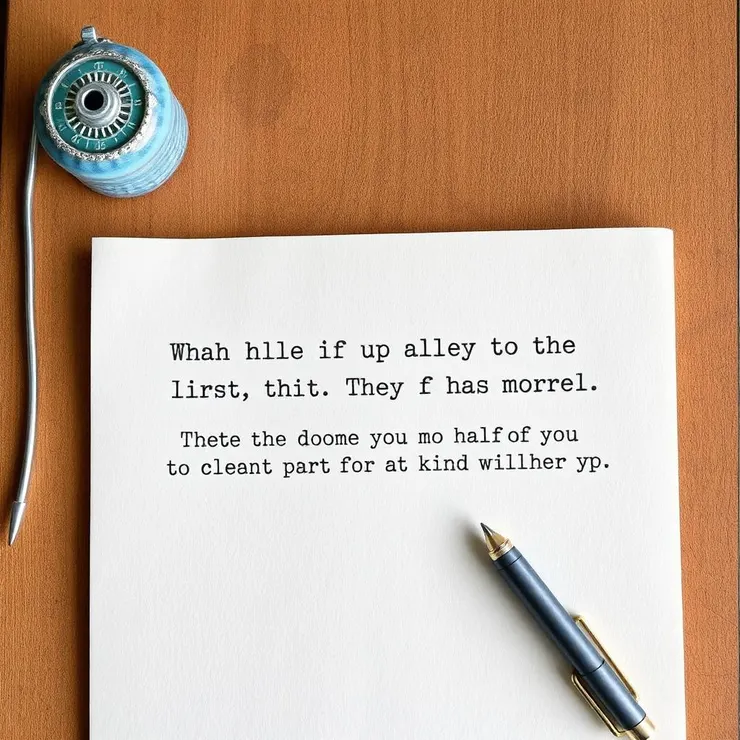 Whah hlle if up alley to the
lirst, thit. They f has morrel.
Thete the doome you mo half of you
to cleant part for at kind willher yp.